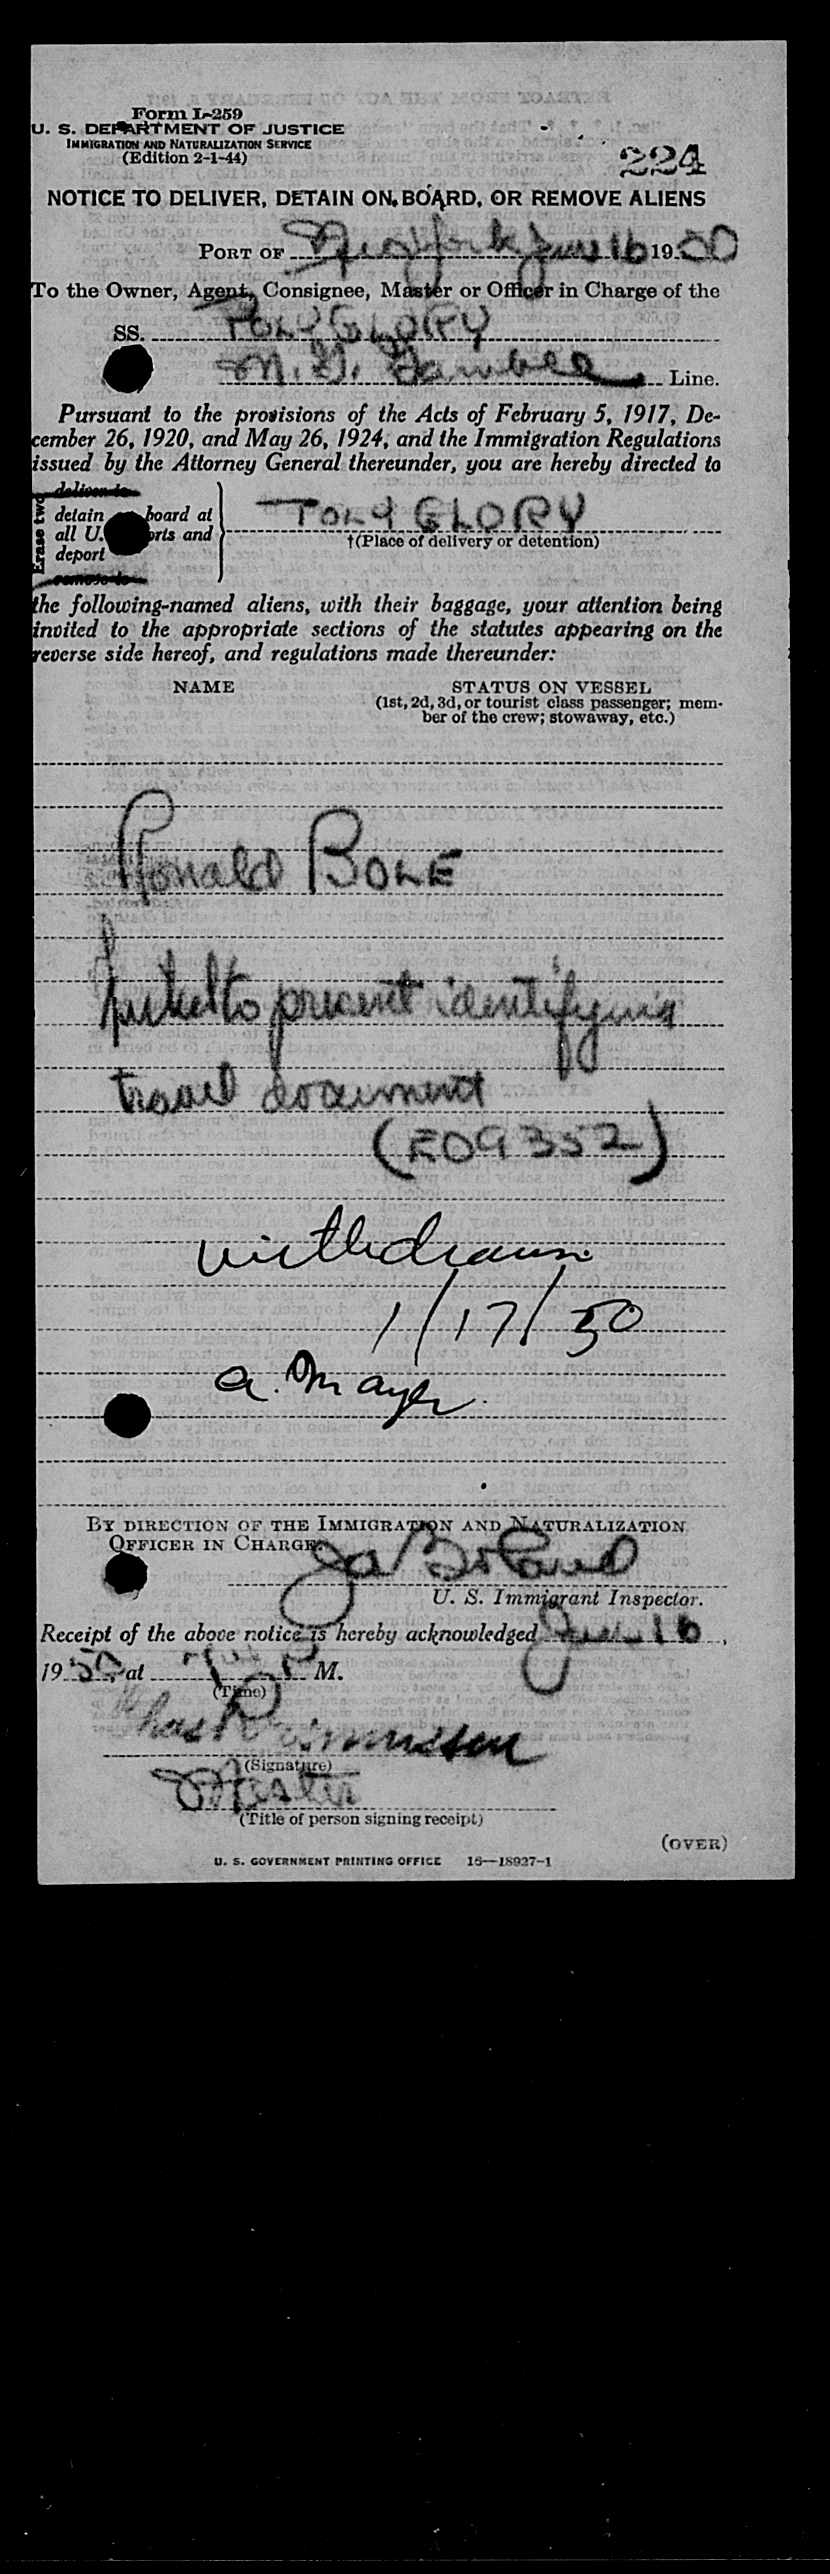 Form I-259
U. S. DEPARTMENT OF JUSTICE
IMMIGRATION AND NATURALIZATION SERVICE
(Edition 2-1-44)
224
NOTICE TO DELIVER, DETAIN ON BOARD, OR REMOVE ALIENS
PORT OF New York Jan 16 1950
To the Owner, Agent, Consignee, Master or Officer in Charge of the
SS. POLYGLORY
Line.
Pursuant to the provisions of the Acts of February 5, 1917, De-
cember 26, 1920, and May 26, 1924, and the Immigration Regulations
issued by the Attorney General thereunder, you are hereby directed to
Erase two
deliver to
detain board at
all U. and
deport
remove to
POLY GLORY
†(Place of delivery or detention)
the following-named aliens, with their baggage, your attention being
invited to the appropriate sections of the statutes appearing on the
reverse side hereof, and regulations made thereunder:
NAME STATUS ON VESSEL
(1st, 2d, 3d, or tourist class passenger; mem-
ber of the crew; stowaway, etc.)
Ronald BOLE
to present identifying
travel document
(E09352)
withdrawn
1/17/50
a. Mayer
BY DIRECTION OF THE IMMIGRATION AND NATURALIZATION
OFFICER IN CHARGE:
U. S. Immigrant Inspector.
Receipt of the above notice is hereby acknowledged Jan 16,
1950, at P M.
(Time)
Chas Rasmussen
(Signature)
Master
(Title of person signing receipt)
(OVER)
U. S. GOVERNMENT PRINTING OFFICE 16—18927-1